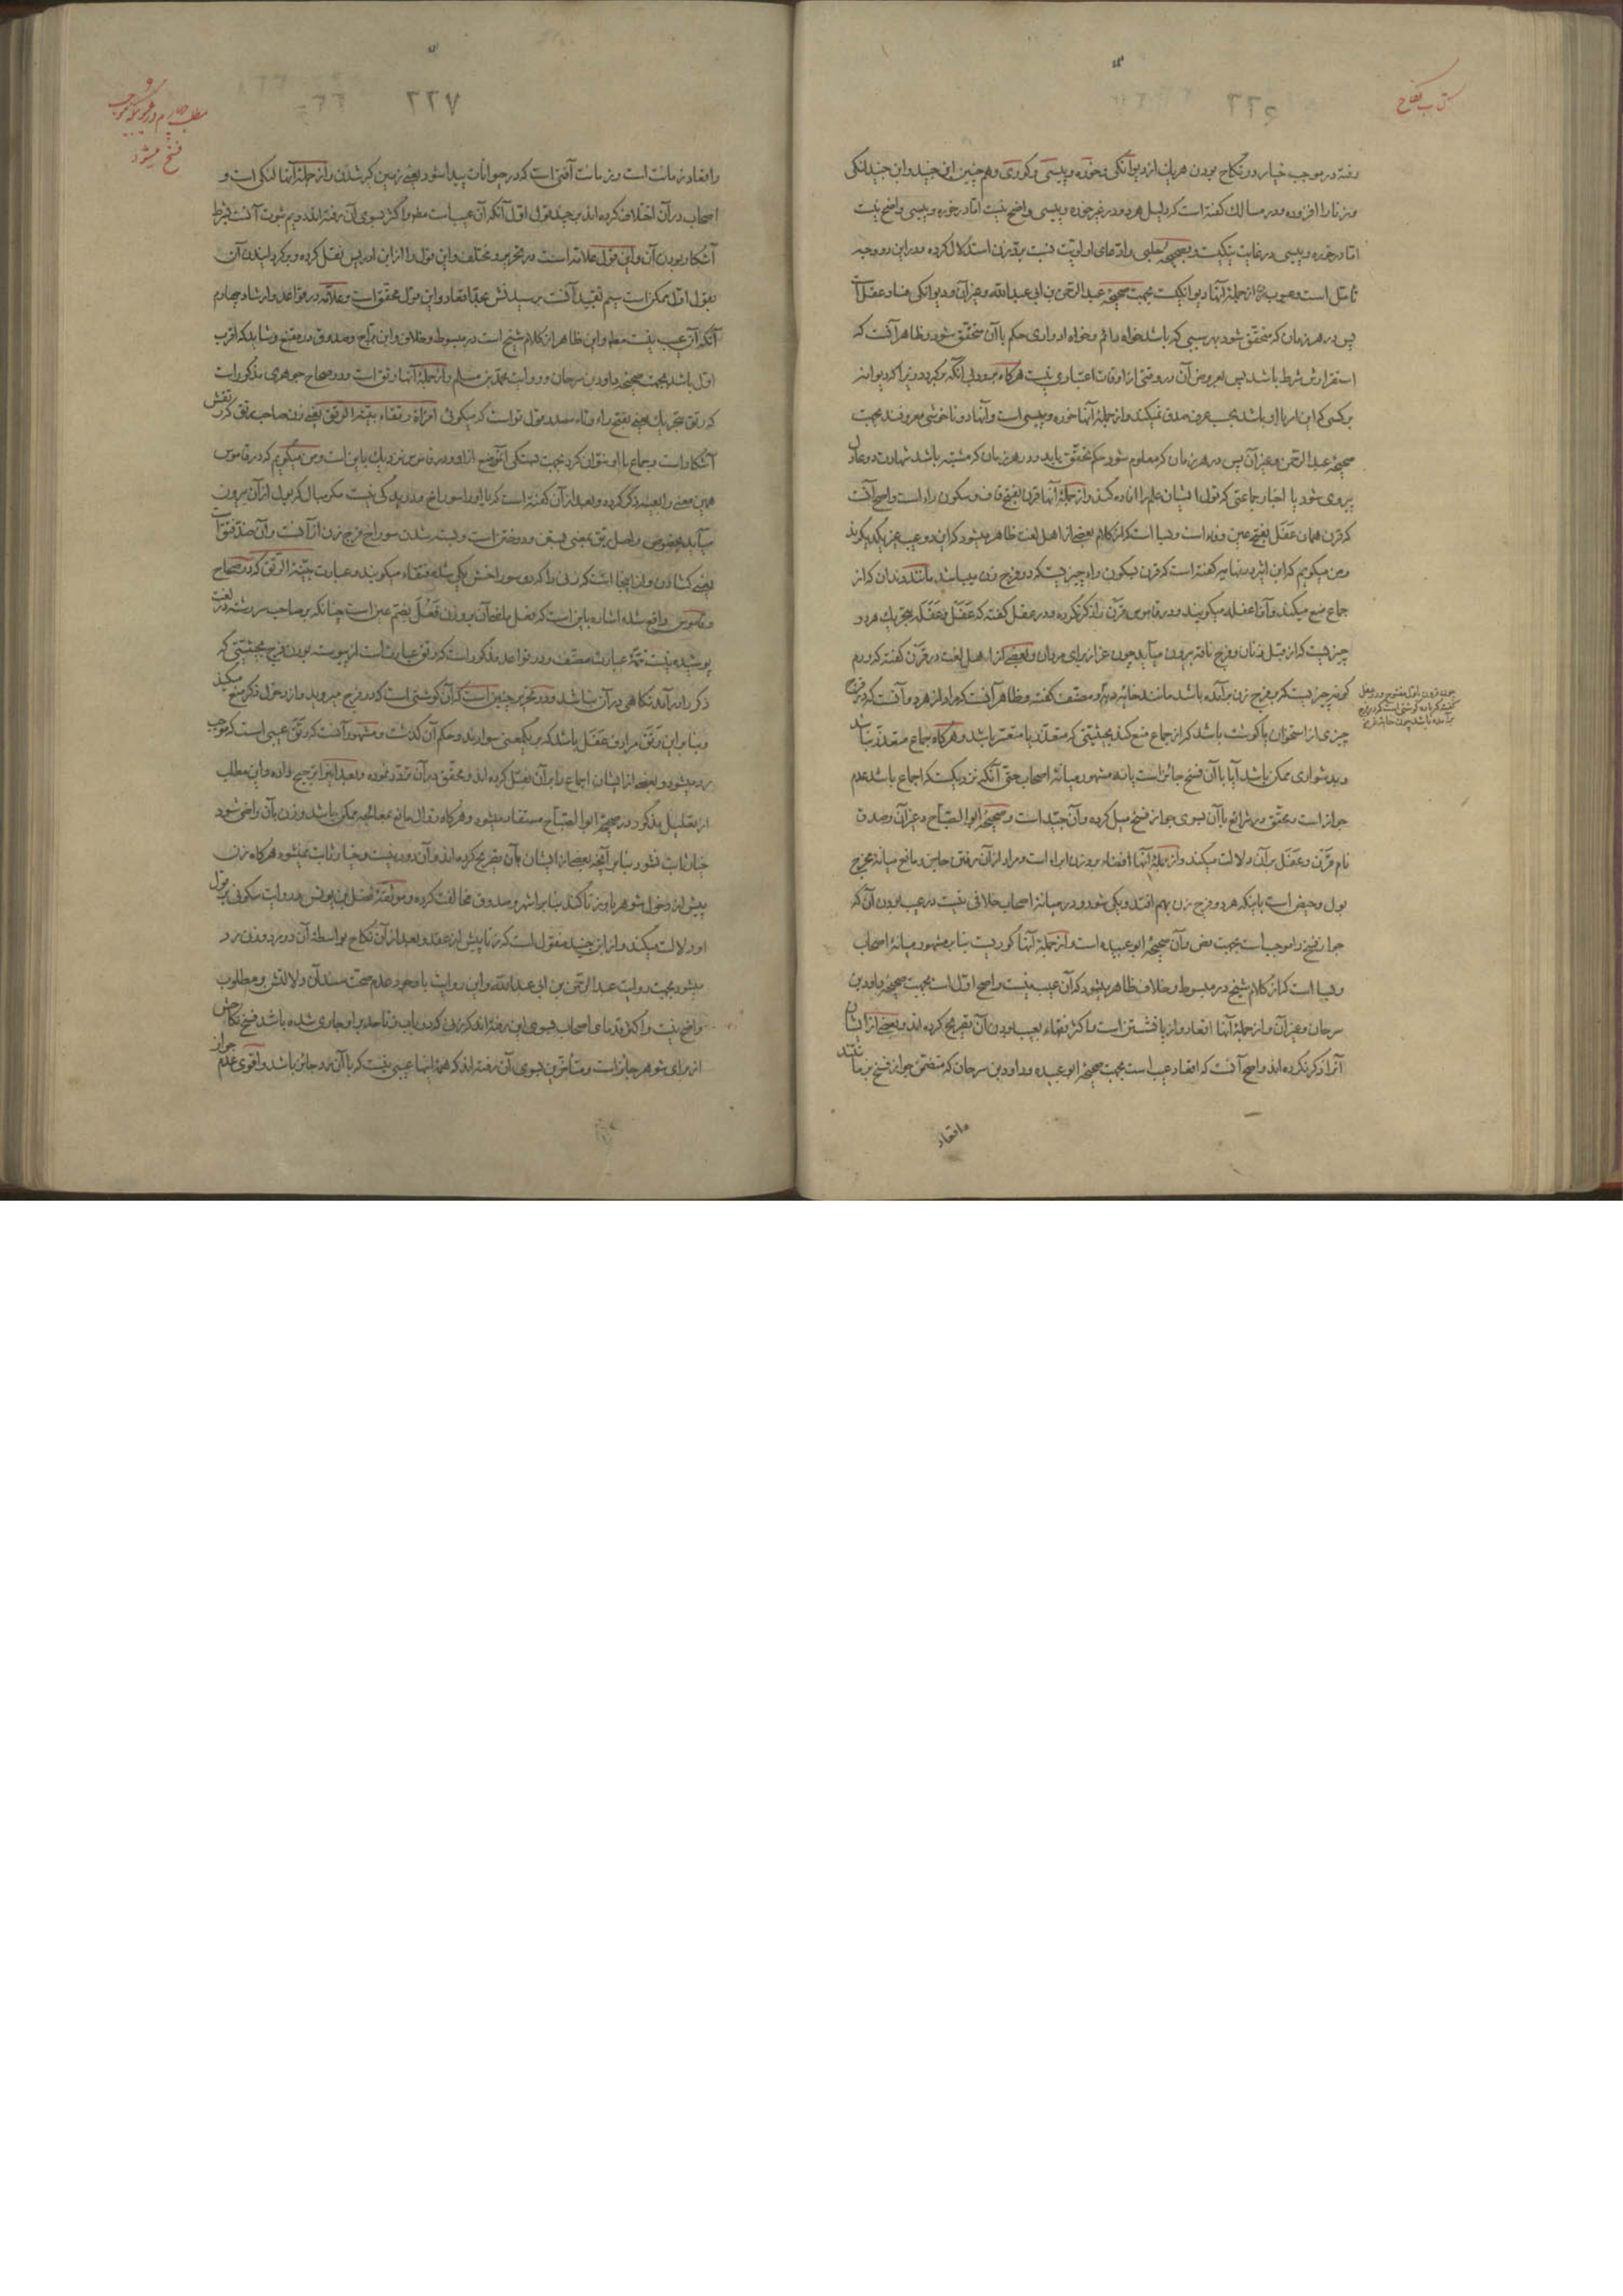 کتاب نکاح
رفته در موجب خیار در نکاح بودن هر یك از دیوانگی و خوره و پیسی و کوری و هم چنین ابن جنید و ابن جنید لنگی
وزنا را افزوده و در مسالك گفته است که دلیل هر دو در غیر خوره و پیسی واضح نیست اما در خوره و پیسی واضح نیست
اما در خوره و پیسی در غایت نیکیست و بصحیحه حلبی و ادعای اولویت نسبت بزن استدلال کرده و در این دو وجه
تامّل است و عیوب زن از جملهٔ آنها دیوانگیست بجهت صحیحه عبد الرحمن بن ابی عبد الله و غیر آن و دیوانگی فساد عقل است
پس در هر زمان که متحقّق شود بهر سببی که باشد خواه دائم و خواه ادواری حکم با آن متحقّق شود و ظاهر آنست که
استقرارش شرط باشد پس بعروض آن در وقتی از اوقات اعتباری نیست هرگاه برودی آنکه برگردد زیرا که دیوانه
بر کسی که این امر با او باشد بحسب عرف صدق نمیکند و از جملهٔ آنها خوره و پیسی است و آنها دو ناخوشی معروفند بجهت
صحیحهٔ عبد الرحمن و غیر آن پس در هر زمان که معلوم شود حکم تحقّق یابد و در هر زمان که مشتبه باشد شهادت دو عادل
پیروی شود یا اخبار جماعتی که قول ایشان علم را افاده کند و از جملهٔ آنها قرن بفتح قاف و سکون راء است و اصح آنست
که قرن همان عَفَل بفتح عین و فاء است و بسا است که از کلام بعضی از اهل لغت ظاهر میشود که این دو عیب غیر یکدیگرند
و من میگویم که ابن اثیر در نهایه گفته است که قرن بسکون راء چیزیست که در فرج زن میباشد مانند دندان که از
جماع منع میکند و آنرا عفله میگویند و در قاموس قرن را ذکر نکرده و در عفل گفته که عَفَل و عَفَلَه بتحریك هر دو
چیزیست که از قبل زنان و فرج ناقه بیرون میآید چون غر از برای مردان و بعضی از اهل لغت در قرن گفته که ورم
گونه چیزیست که بر فرج زن برآمده باشد مانند خایه دبّه و مصنّف گفته و ظاهر آنست که مراد از هر دو آنست که در فرج
چیزی از استخوان یا گوشت باشد که از جماع منع کند بحیثیتی که متعذّر یا متعسّر باشد و هرگاه جماع متعذّر نباشد
و بدشواری ممکن باشد آیا با آن فسخ جائز است یا نه مشهور میانهٔ اصحاب حتی آنکه نزدیکست که اجماع باشد عدم
جواز است و محقق در شرائع با آن بسوی جواز فسخ میل کرده و آن جیّد است و صحیحهٔ ابو الصبّاح و غیر آن و صدق
نام قَرَن و عَفَل بر آن دلالت میکند و از جملهٔ آنها افضاء بر وزن ابراء است و مراد از آن رفتن حاجز و مانع میانهٔ مخرج
بول و حیض است باینکه هر دو فرج زن بهم افتد و یکی شود و در میانهٔ اصحاب خلافی نیست در عیب بودن آن که
جواز فسخ را موجب است بجهت نص و آن صحیحهٔ ابو عبیده است و از جملهٔ آنها کوریست بنا بر مشهور میانهٔ اصحاب
و بسا است که از کلام شیخ در مبسوط و خلاف ظاهر میشود که آن عیب نیست و اصح اوّل است بجهت صحیحهٔ داود بن
سرحان و غیر آن و از جملهٔ آنها اقعاد و از پا نشستن است و اکثر فقهاء بعیب بودن آن تصریح کرده اند و بعضی از ایشان
آنرا ذکر نکرده اند و اصح آنست که اقعاد عیب است بجهت صحیحهٔ ابو عبیده و داود بن سرحان که متضمّن جواز فسخ بزمانتند
و اقعاد
مطلب چهارم در
فسخ میشود
٢٢٧
و اقعاد زمانت است و زمانت آفتی است که در حیوانات پیدا شود یعنی زمین گیر شدن و از جملهٔ آنها لنگی است و
اصحاب در آن اختلاف کرده اند بر چند قول اوّل آنکه آن عیب است مطلقا و اکثر بسوی آن رفته اند دویم ثبوت آنست بشرط
آشکار بودن آن و این قول علامه است در تحریر و مختلف و این قول را از ابن ادریس نقل کرده و برگردانیدن آن
بقول اوّل ممکن است سیم تقیید آنست برسیدنش بحدّ اقعاد و این قول محقّق است و علّامه در قواعد و ارشاد چهارم
آنکه آن عیب نیست مطلقا و این ظاهر از کلام شیخ است در مبسوط و خلاف و ابن برّاج و صدوق در مقنع و شاید که اقرب
اوّل باشد بجهت صحیحهٔ داود بن سرحان و روایت محمّد بن مسلم و از جملهٔ آنها رتق است و در صحاح جوهری مذکور است
که رتق بتحریك یعنی بفتح راء و تاء مصدر قول تو است که میگوئی امْرَأة رتقاء بیّنة الرتق یعنی زن صاحب رتق که رتقش
آشکار است و جماع با او نتوان کرد بجهت بستگی آن موضع از او و در قاموس نزدیك باین است و من میگویم که در قاموس
همین معنی را بعینه ذکر کرده و بعد از آن گفته است که یا او را سوراخ و دریدگی نیست مگر مبال که بول از آن بیرون
میآید بخصوص و اصل رتق بمعنی بستن و دوختن است و بسته شدن سوراخ فرج زن از آنست و آن ضدّ فتق است
یعنی گشادن و از اینجا است که زن را که دو سوراخش یکی شده فتقاء میگویند و عبارت بیّنة الرتق که در صحاح
و قاموس واقع شده اشاره باین است که فعل ماضی آن بر وزن فَعُلَ بضم عین است چنانکه بر صاحب سررشته در لغت
پوشیده نیست تتمّهٔ عبارت مصنّف و در قواعد مذکور است که رتق عبارت است از پیوسته بودن فرج بحیثیتی که
ذکر را در آمدنگاهی در آن نباشد و در تحریر چنین است که آن گوشتی است که در فرج میروید و از دخول ذکر منع میکند
و بنا بر این رتق مرادف عَفَل باشد که بر یکمعنی سوارند و حکم آن گذشت و مشهور آنست که رتق عیبی است که موجب
رد میشود و بعضی از ایشان اجماع را بر آن نقل کرده اند و محقّق در آن تردّد نموده و بعد آنرا ترجیح داده و این مطلب
از تعلیل مذکور در صحیحهٔ ابو الصبّاح مستفاد میشود و هرگاه زوال مانع بمعالجه ممکن باشد و زن بآن راضی شود
خیار ثابت نشود بنا بر آنچه بعضی از ایشان بآن تصریح کرده اند و آن دور نیست و خیار ثابت نمیشود هرگاه زن
پیش از دخول شوهر باو زنا کند بنا بر اشهر و صدوق مخالفت کرده و موثقهٔ فضل بن یونس و روایت سکونی بر قول
او دلالت میکند و از ابن جنید منقول است که زنا پیش از عقد و بعد از آن نکاح بواسطهٔ آن در مرد و زن رد
میشود بجهت روایت عبد الرحمن بن ابی عبد الله و این روایت با وجود عدم صحّت سند آن دلالتش بر مطلوب
واضح نیست و اکثر قدمای اصحاب بسوی این رفته اند که زنی که در باب زنا حد بر او جاری شده باشد فسخ نکاحش
از برای شوهر جائز است و متأخّرین بسوی آن رفته اند که همهٔ اینها عیبی نیست که با آن رد جائز باشد و اقوی عدم جواز